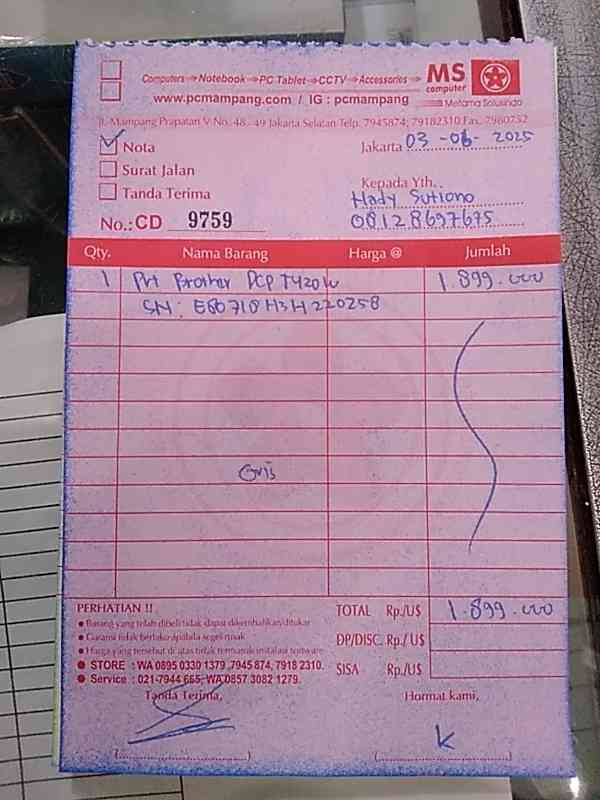 Computers ➔ Notebook ➔ PC Tablet ➔ CCTV ➔ Accessories ➔ MS computer
www.pcmampang.com / IG : pcmampang Metama Solusindo
Jl. Mampang Prapatan V No. 48 - 49 Jakarta Selatan Telp. 7945874, 79182310 Fax. 7980732
Nota Jakarta 03 - 06 - 2025
Surat Jalan Kepada Yth.
Tanda Terima Hady Sutiono
No.: CD 9759 08128697675
Qty. Nama Barang Harga @ Jumlah
1 Prt Brother DCP T420W 1.899.000
SN: E80718H3H220258
PERHATIAN !! TOTAL Rp./U$ 1.899.000
Barang yang telah dibeli tidak dapat dikembalikan/ditukar
Garansi tidak berlaku apabila segel rusak DP/DISC. Rp./ U$
Harga yang tersebut di atas tidak termasuk instalasi software
STORE : WA 0895 0330 1379 ,7945 874, 7918 2310. SISA Rp./U$
Service : 021-7944 665, WA 0857 3082 1279.
Tanda Terima, Hormat kami,